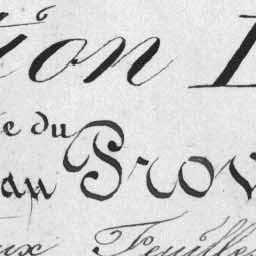 tion L
e du
au Prov
ux Feuille